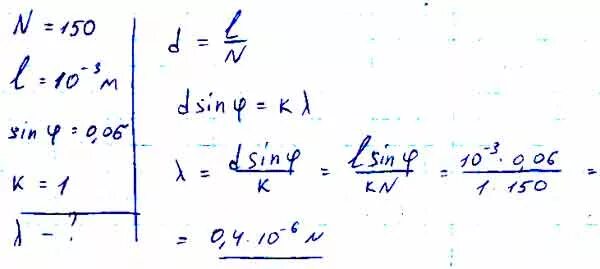 N = 150
l = 10⁻³ м
sin φ = 0,06
K = 1
λ - ?
d = l/N
d sin φ = K λ
λ = d sin φ / K = l sin φ / KN = 10⁻³ · 0,06 / 1 · 150 =
= 0,4 · 10⁻⁶ м